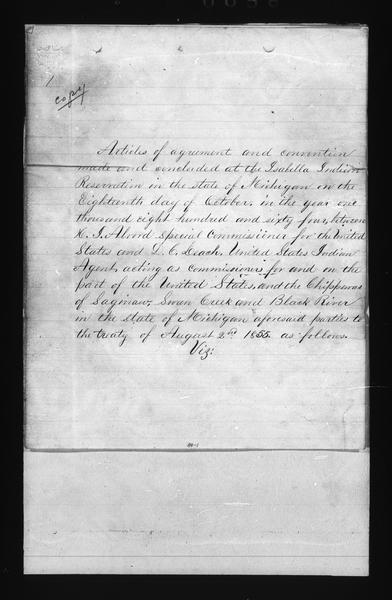 1
copy
Articles of agreement and convention
made and concluded at the Isabella Indian
Reservation in the state of Michigan on the
Eighteenth day of October, in the year one
thousand eight hundred and sixty four, between
H. J. Alvord special Commissioner for the United
States and D. C. Leach, United States Indian
Agent, acting as commissioners for and on the
part of the United States, and the Chippewas
of Saginaw, Swan Creek and Black River
in the state of Michigan aforesaid parties to
the treaty of August 2nd 1855. as follows.
Viz: